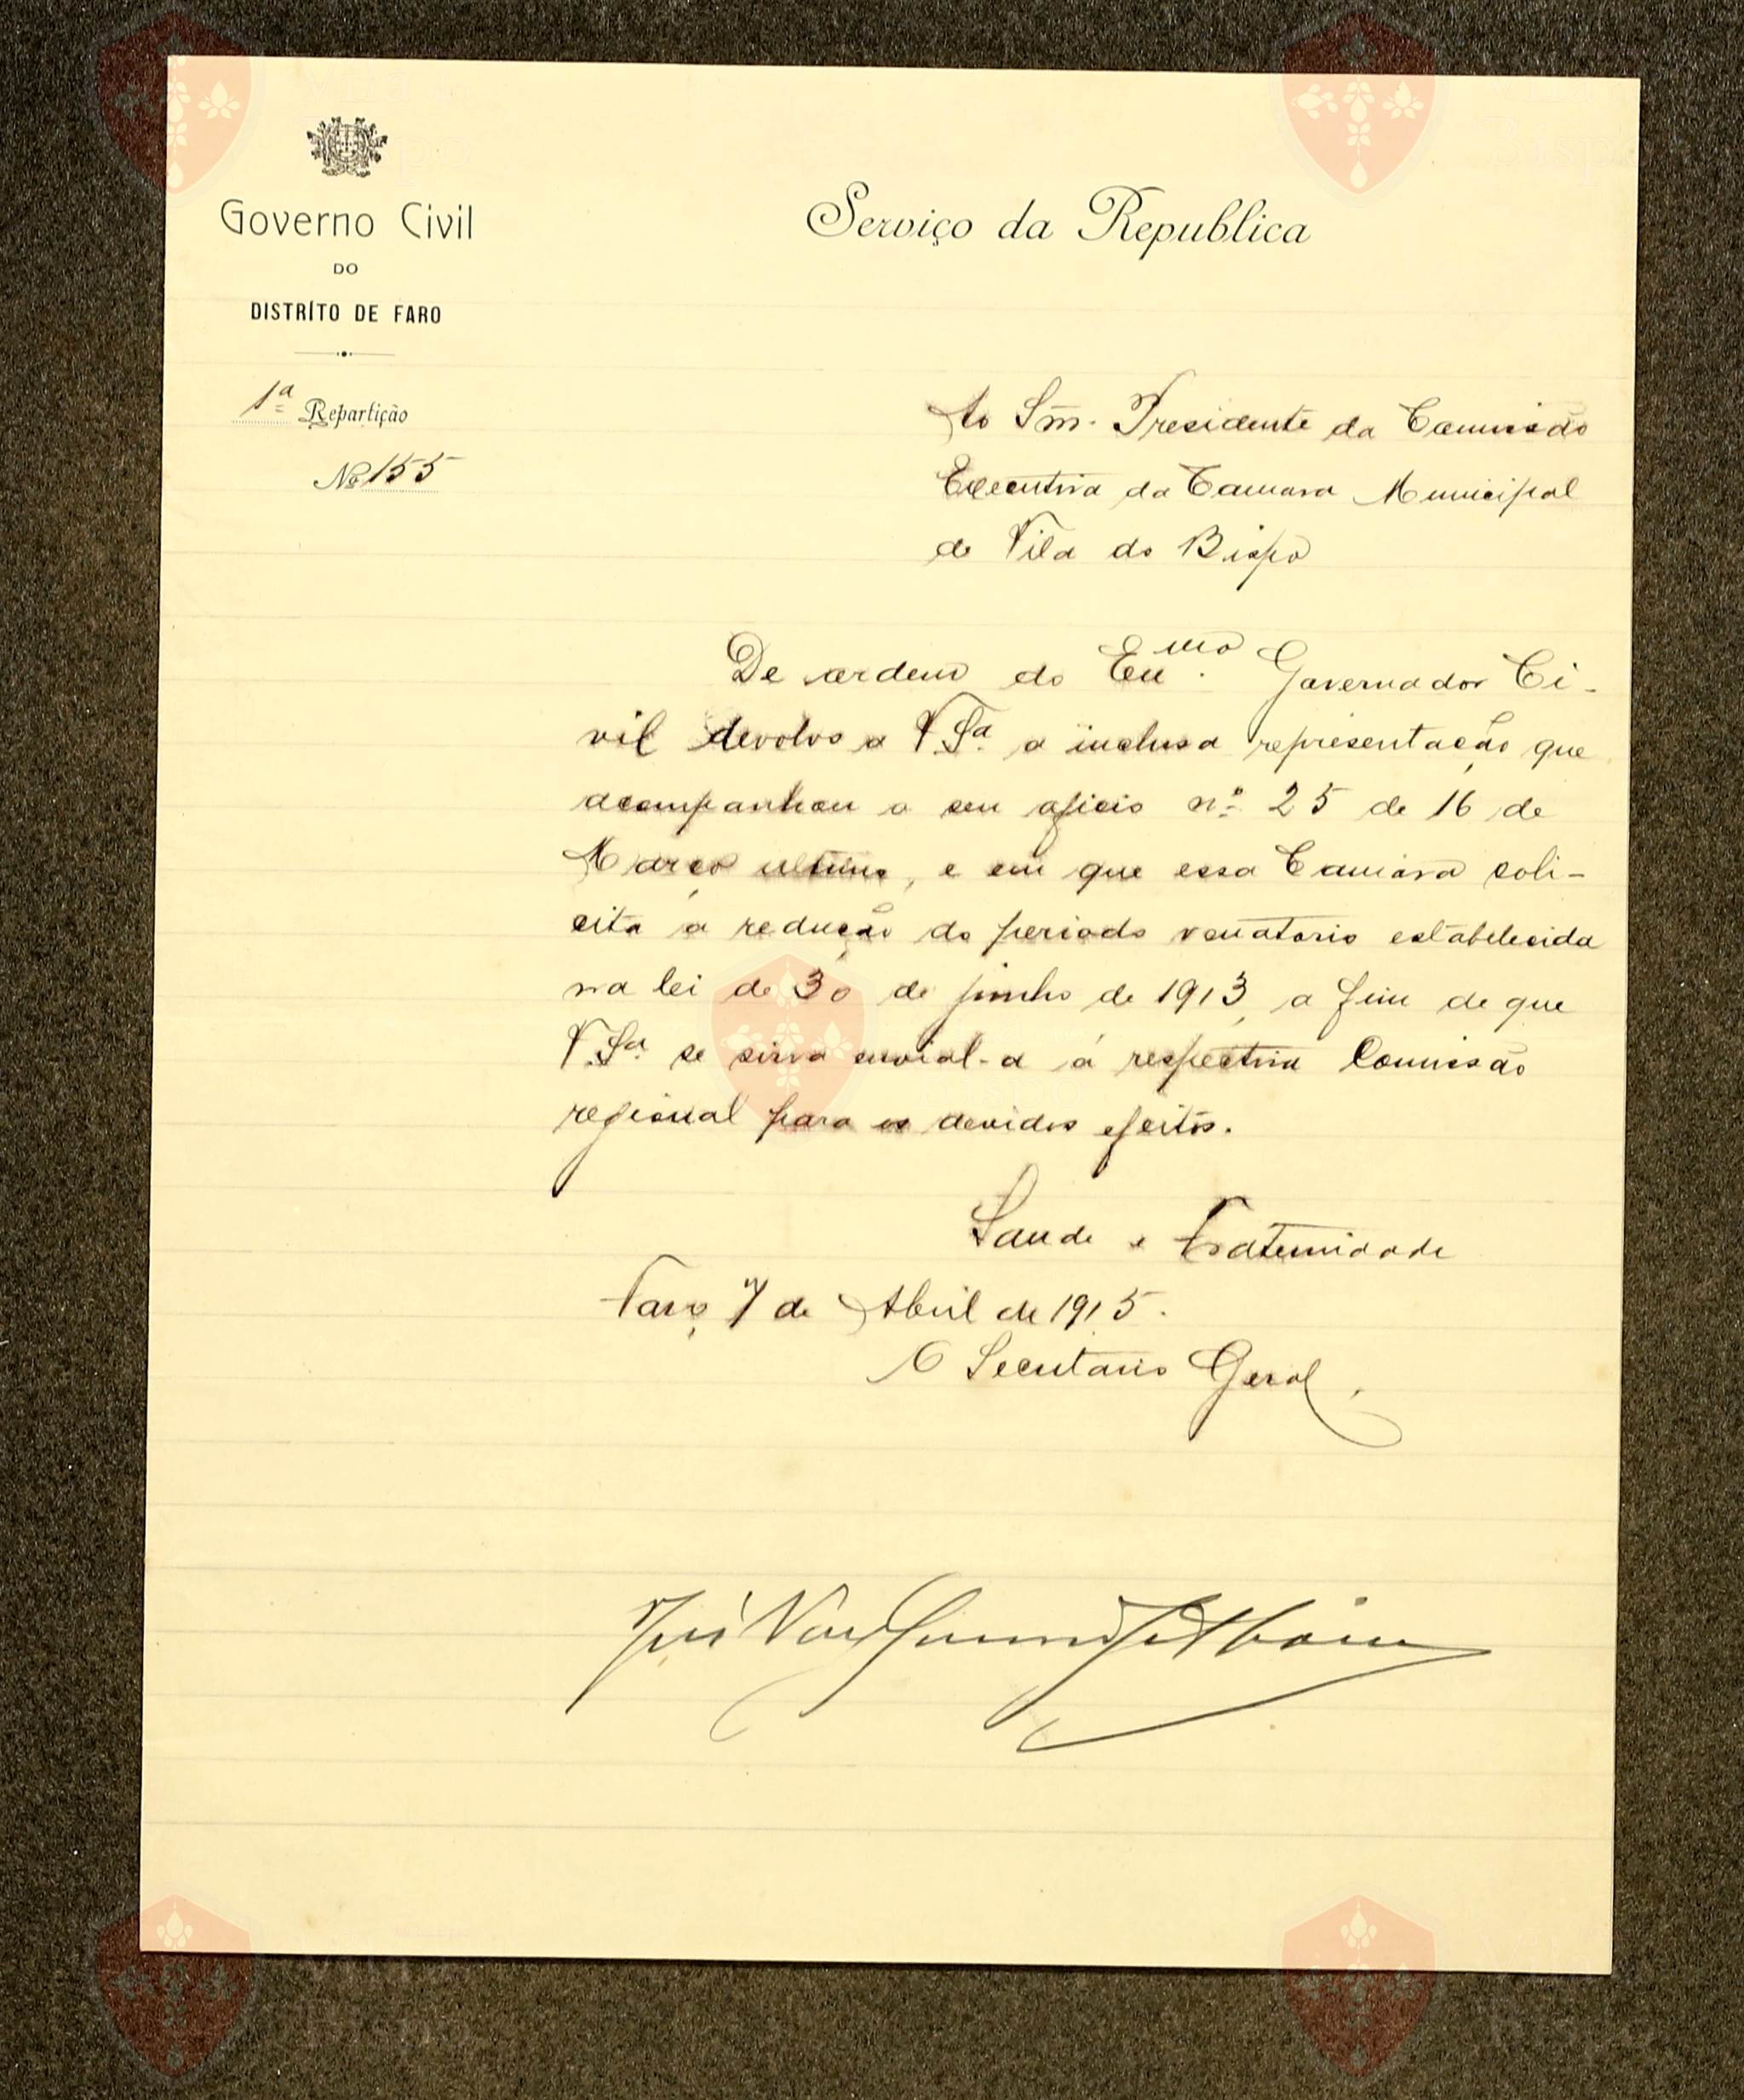 Governo Civil
DO
DISTRÍTO DE FARO
1ª Repartição
Nº 155
Serviço da Republica
Ao Snr. Presidente da Comissão
Executiva da Camara Municipal
de Vila do Bispo
De ordem do Exmo. Governador Ci-
vil devolvo a V. Sª. a inclusa representação que
acompanhou o seu oficio nº. 25 de 16 de
Março ultimo, e em que essa Camara soli-
cita a redução do periodo venatorio estabelecido
na lei de 30 de junho de 1913, a fim de que
V. Sª. se sirva enviál-a á respectiva Comissão
regional para os devidos efeitos.
Saude e Fraternidade
Faro, 7 de Abril de 1915.
O Secretario Geral,
José Vaz